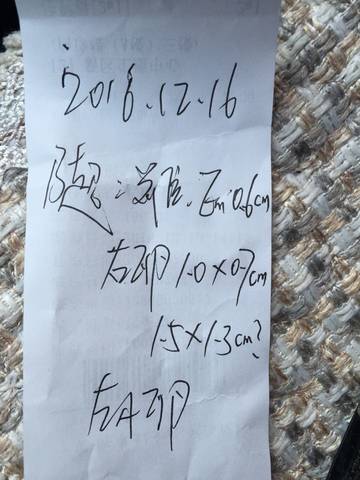 2016.12.16
阴超:前位.Em:0.6cm
右卵1.0×0.7cm
1.5×1.3cm?
左A卵